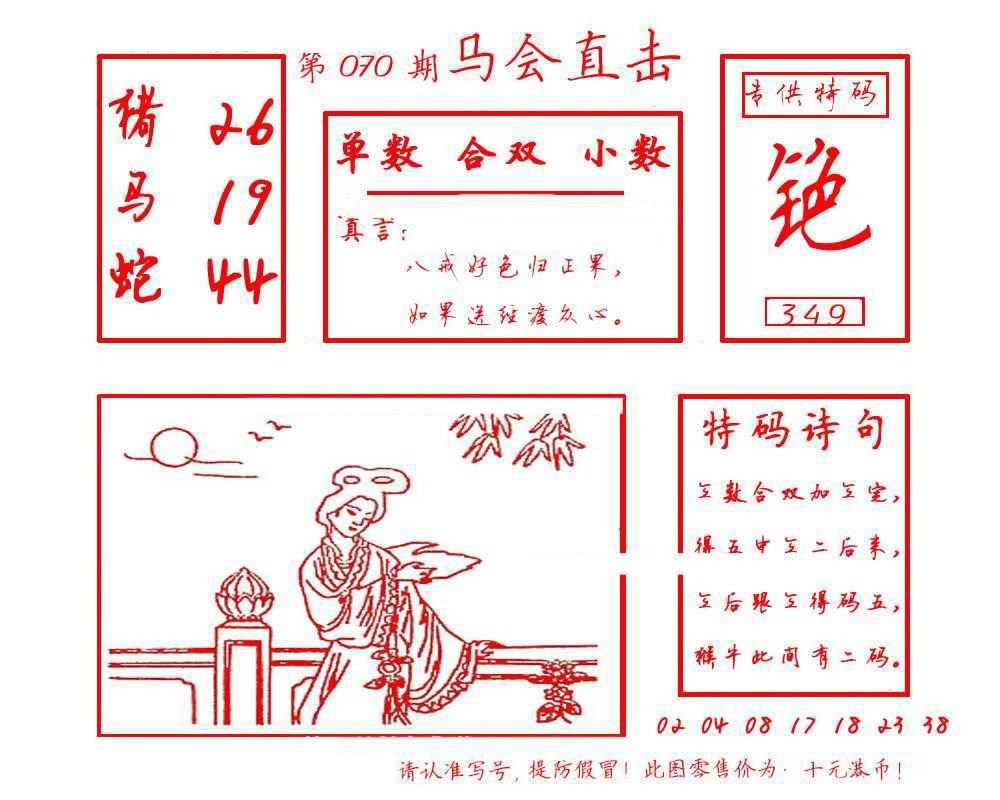 第070期马会直击
猪 26
马 19
蛇 44
单数 合双 小数
真言：
八戒好色归正果，
如果送经渡众心。
专供特码
349
特码诗句
数合双加
得五中 二后来，
后跟 得码五，
猴牛此间有二码。
02 04 08 17 18 23 38
请认准写号，提防假冒！此图零售价为：十元港币！